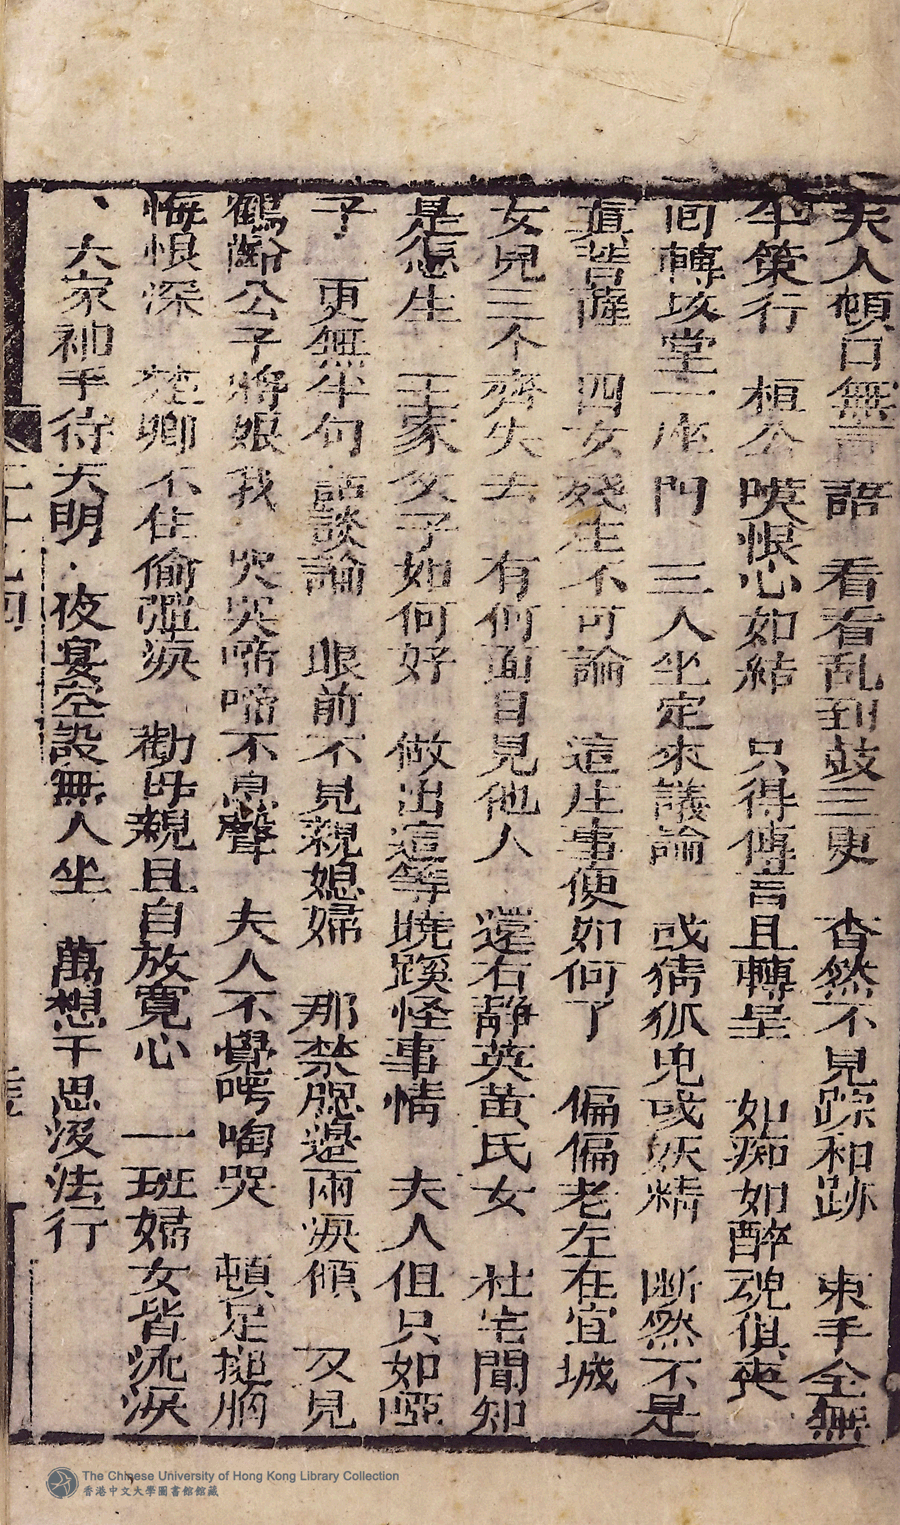 夫人頓口無言語　看看乱到鼓三更　杳然不見踪和跡　束手全無
半策行　桓公嘆恨心如結　只得傳言且轉呈　如痴如醉魂俱喪
囘轉攻堂一座門　三人坐定來議論　或猜狐鬼或妖精　断然不是
真菩薩　四女殘生不可論　這庄事便如何了　偏偏老左在宜城
女兒三个齊失去　有何面目見他人　還有静英黄氏女　杜宅聞知
是怎生　王家父子如何好　做出這等曉蹊怪事情　夫人但只如啞
子　更無半句話談論　眼前不見親媳婦　那禁腮邉兩淚傾　又見
鶴齡公子將娘找　哭哭啼啼不息聲　夫人不覺咷啕哭　頓足搥胸
悔恨深　楚卿不住偷彈淚　勸母親且自放寛心　一班婦女皆流淚
、大家神手待天明　夜宴空設無人坐　萬想千思沒法行
The Chinese University of Hong Kong Library Collection
香港中文大學圖書館館藏